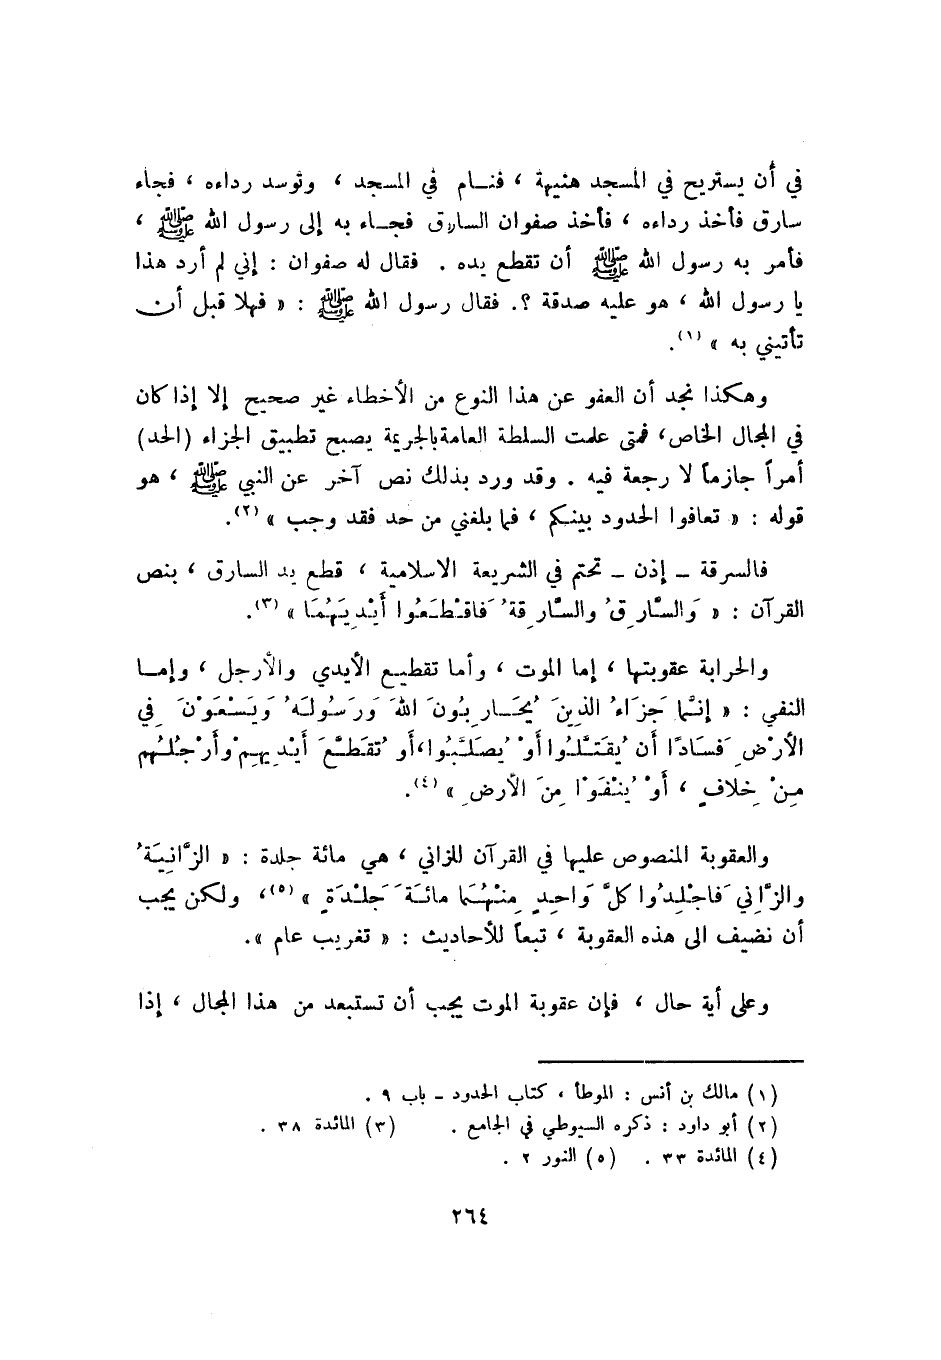 في أن يستريح في المسجد هنيهة ، فنـام في المسجد ، وتوسد رداءه ، فجاء
سارق فأخذ رداءه ، فأخذ صفوان السارق فجـاء به إلى رسول الله ﷺ ،
فأمر به رسول الله ﷺ أن تقطع يده . فقال له صفوان : إني لم أرد هذا
يا رسول الله ، هو عليه صدقة ؟. فقال رسول الله ﷺ : « فهلا قبل أن
تأتيني به » (١).
وهكذا نجد أن العفو عن هذا النوع من الأخطاء غير صحيح إلا إذا كان
في المجال الخاص، فمتى علمت السلطة العامة بالجريمة يصبح تطبيق الجزاء (الحد)
أمراً جازماً لا رجعة فيه . وقد ورد بذلك نص آخر عن النبي ﷺ ، هو
قوله : « تعافوا الحدود بينكم ، فما بلغني من حد فقد وجب » (٢).
فالسرقة ـ إذن ـ تحتم في الشريعة الاسلامية ، قطع يد السارق ، بنص
القرآن : « وَالسَّارِقُ والسَّارِقةُ فَاقْطَعُوا أَيْدِيَهُمَا » (٣).
والحرابة عقوبتها ، إما الموت ، وأما تقطيـع الأيدي والأرجل ، وإمـا
النفي : « إِنَّمَا جَزَاءُ الذينَ يُحَـارِبُونَ اللهَ وَرَسُولَهُ وَيَسْعَوْنَ فِي
الأرْضِ فَسَادًا أن يُقَتَّلُوا أوْ يُصَلَّبُوا، أو تُقَطَّعَ أيْدِيهِمْ وأرْجُلُهُم
مِنْ خِلافٍ ، أوْ يُنْفَوْا مِنَ الأرضِ » (٤).
والعقوبة المنصوص عليها في القرآن للزاني ، هي مائة جلدة : « الزَّانِيَةُ
والزَّانِي فَاجْلِدُوا كلَّ وَاحِدٍ مِنْهُمَا مائَةَ جَلْدَةٍ » (٥)، ولكن يجب
أن نضيف الى هذه العقوبة ، تبعاً للأحاديث : « تغريب عام ».
وعلى أية حال ، فإن عقوبة الموت يجب أن تستبعد من هذا المجال ، إذا
(١) مالك بن أنس : الموطأ ، كتاب الحدود ـ باب ٩ .
(٢) أبو داود : ذكره السيوطي في الجامع . (٣) المائدة ٣٨ .
(٤) المائدة ٣٣ . (٥) النور ٢ .
٢٦٤